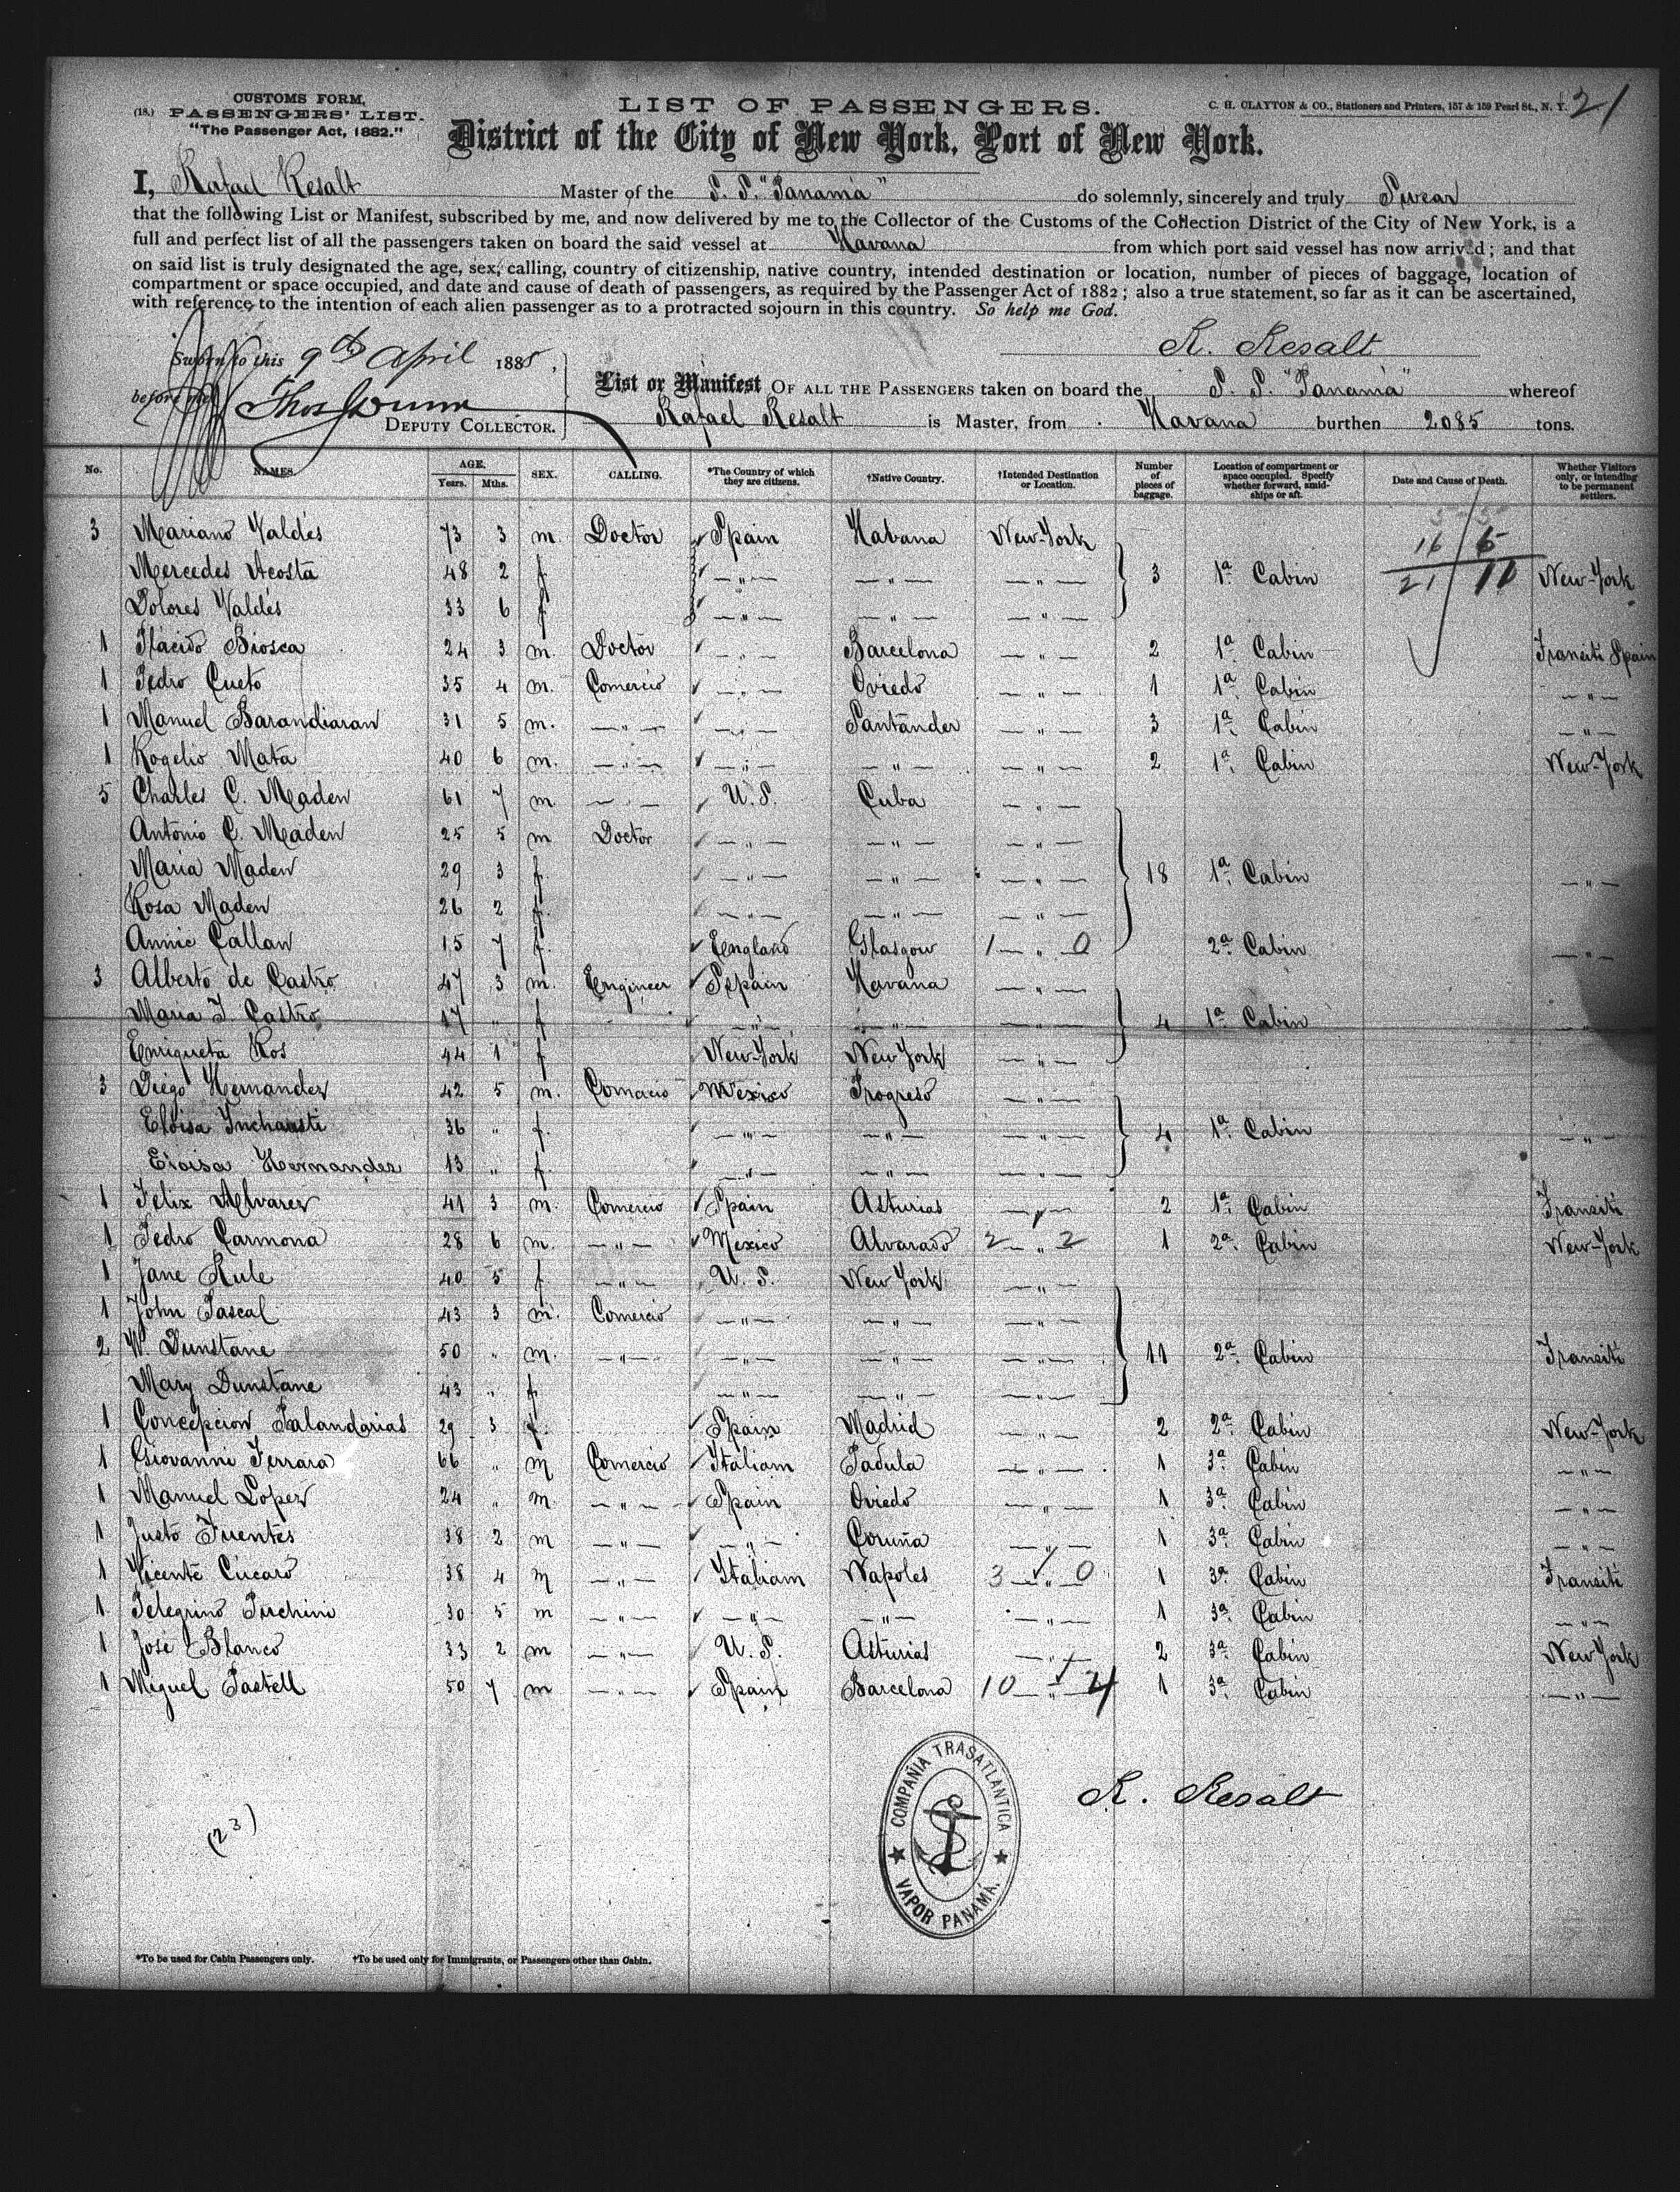 CUSTOMS FORM, LIST OF PASSENGERS. C. H. CLAYTON & CO., Stationers and Printers, 157 & 159 Pearl St., N. Y. 21
(18.) PASSENGERS' LIST.
"The Passenger Act, 1882." District of the City of New York, Port of New York.
I, Rafael Resalt Master of the S. S. "Panama" do solemnly, sincerely and truly Swear
that the following List or Manifest, subscribed by me, and now delivered by me to the Collector of the Customs of the Collection District of the City of New York, is a
full and perfect list of all the passengers taken on board the said vessel at Havana from which port said vessel has now arrived; and that
on said list is truly designated the age, sex, calling, country of citizenship, native country, intended destination or location, number of pieces of baggage, location of
compartment or space occupied, and date and cause of death of passengers, as required by the Passenger Act of 1882; also a true statement, so far as it can be ascertained,
with reference to the intention of each alien passenger as to a protracted sojourn in this country. So help me God.
Sworn to this 9th April 1885, R. Resalt
before me List or Manifest OF ALL THE PASSENGERS taken on board the S. S. "Panama" whereof
Thos Dunn
DEPUTY COLLECTOR. Rafael Resalt is Master, from Havana burthen 2085 tons.
No. NAMES. AGE. Years. Mths. SEX. CALLING. *The Country of which they are citizens. †Native Country. †Intended Destination or Location. Number of pieces of baggage. Location of compartment or space occupied. Specify whether forward, amidships or aft. Date and Cause of Death. Whether Visitors only, or intending to be permanent settlers.
3 Mariano Valdés 73 3 m. Doctor Spain Habana New-York 16 6
Mercedes Acosta 48 2 f. —"— —"— —"— 3 1a Cabin 21 11 New-York
Dolores Valdés 33 6 f —"— —"— —"—
1 Plácido Biosca 24 3 m. Doctor —"— Barcelona —"— 2 1a Cabin Transiti Spain
1 Pedro Cueto 35 4 m. Comercio —"— Oviedo —"— 1 1a Cabin —"—
1 Manuel Barandiaran 31 5 m. —"— —"— Santander —"— 3 1a Cabin —"—
1 Rogelio Mata 40 6 m. —"— —"— —"— —"— 2 1a Cabin New-York
5 Charles C. Maden 61 7 m —"— U. S. Cuba —"—
Antonio C. Maden 25 5 m Doctor —"— —"— —"—
Maria Maden 29 3 f. —"— —"— —"— 18 1a Cabin —"—
Rosa Maden 26 2 f. —"— —"— —"—
Annie Callan 15 7 f. England Glasgow 1—"—0 2a Cabin —"—
3 Alberto de Castro 47 3 m. Engineer Spain Havana —"—
Maria J. Castro 17 " f —"— —"— —"— 4 1a Cabin —"—
Enriqueta Ros 44 1 f New-York New York —"—
3 Diego Hernandez 42 5 m. Comercio Mexico Progreso —"—
Eloisa Inchausti 36 " f. —"— —"— —"— 4 1a Cabin —"—
Eloisa Hernandez 13 " f. —"— —"— —"—
1 Felix Alvarez 41 3 m. Comercio Spain Asturias —"— 2 1a Cabin Transiti
1 Pedro Carmona 28 6 m. —"— Mexico Alvarado 2—"—2 1 2a Cabin New-York
1 Jane Rule 40 5 f. —"— U. S. New York —"—
1 John Pascal 43 3 m. Comercio —"— —"— —"—
2 W. Dunstane 50 " m. —"— —"— —"— —"— 11 2a Cabin Transiti
Mary Dunstane 43 " f —"— —"— —"—
1 Concepcion Salandarias 29 3 f. Spain Madrid —"— 2 2a Cabin New-York
1 Giovanni Ferrara 66 " m Comercio Italiam Padula —"— 1 3a Cabin —"—
1 Manuel Lopez 24 " m —"— Spain Oviedo —"— 1 3a Cabin —"—
1 Justo Fuentes 38 2 m —"— —"— Coruña —"— 1 3a Cabin —"—
1 Vicente Cúcaro 38 4 m —"— Italiam Napoles 3—"—0 1 3a Cabin Transiti
1 Pelegrino Puchini 30 5 m —"— —"— —"— —"— 1 3a Cabin —"—
1 José Blanco 33 2 m —"— U. S. Asturias —"— 2 3a Cabin New York
1 Miguel Pastell 50 7 m —"— Spain Barcelona 10—"—4 1 3a Cabin —"—
COMPAÑIA TRASATLANTICA
VAPOR PANAMÁ.
R. Resalt
(23)
*To be used for Cabin Passengers only. †To be used only for Immigrants, or Passengers other than Cabin.